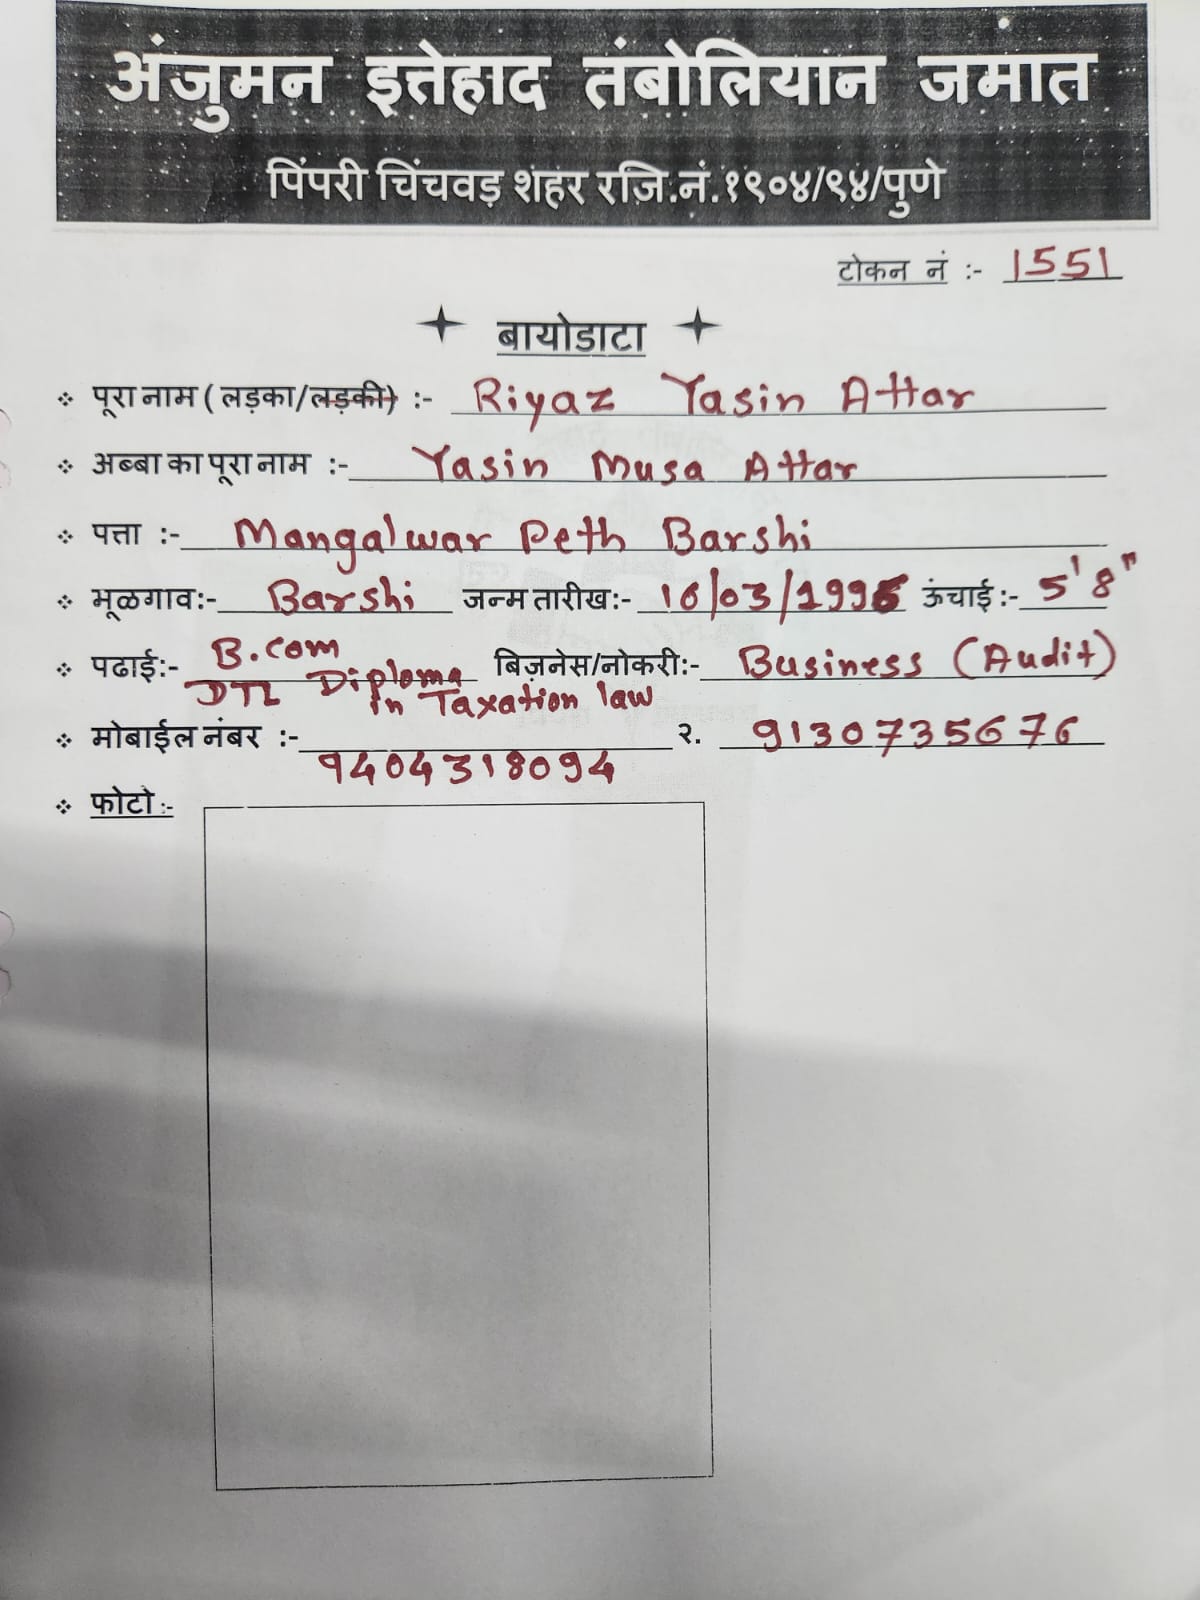 अंजुमन इत्तेहाद तंबोलियान जमात
पिंपरी चिंचवड़ शहर रज़ि.नं.१९०४/९४/पुणे
टोकन नं :- 1551
बायोडाटा
पूरा नाम ( लड़का/लड़की) :- Riyaz Yasin Attar
अब्बा का पूरा नाम :- Yasin Musa Attar
पत्ता :- Mangalwar Peth Barshi
मूळगाव:- Barshi जन्म तारीख:- 16/03/1996 ऊंचाई :- 5'8"
पढाई:- B.com बिज़नेस/नोकरी:- Business (Audit)
DTL Diploma in Taxation law
मोबाईल नंबर :- 9404318094 २. 9130735676
फोटो :-